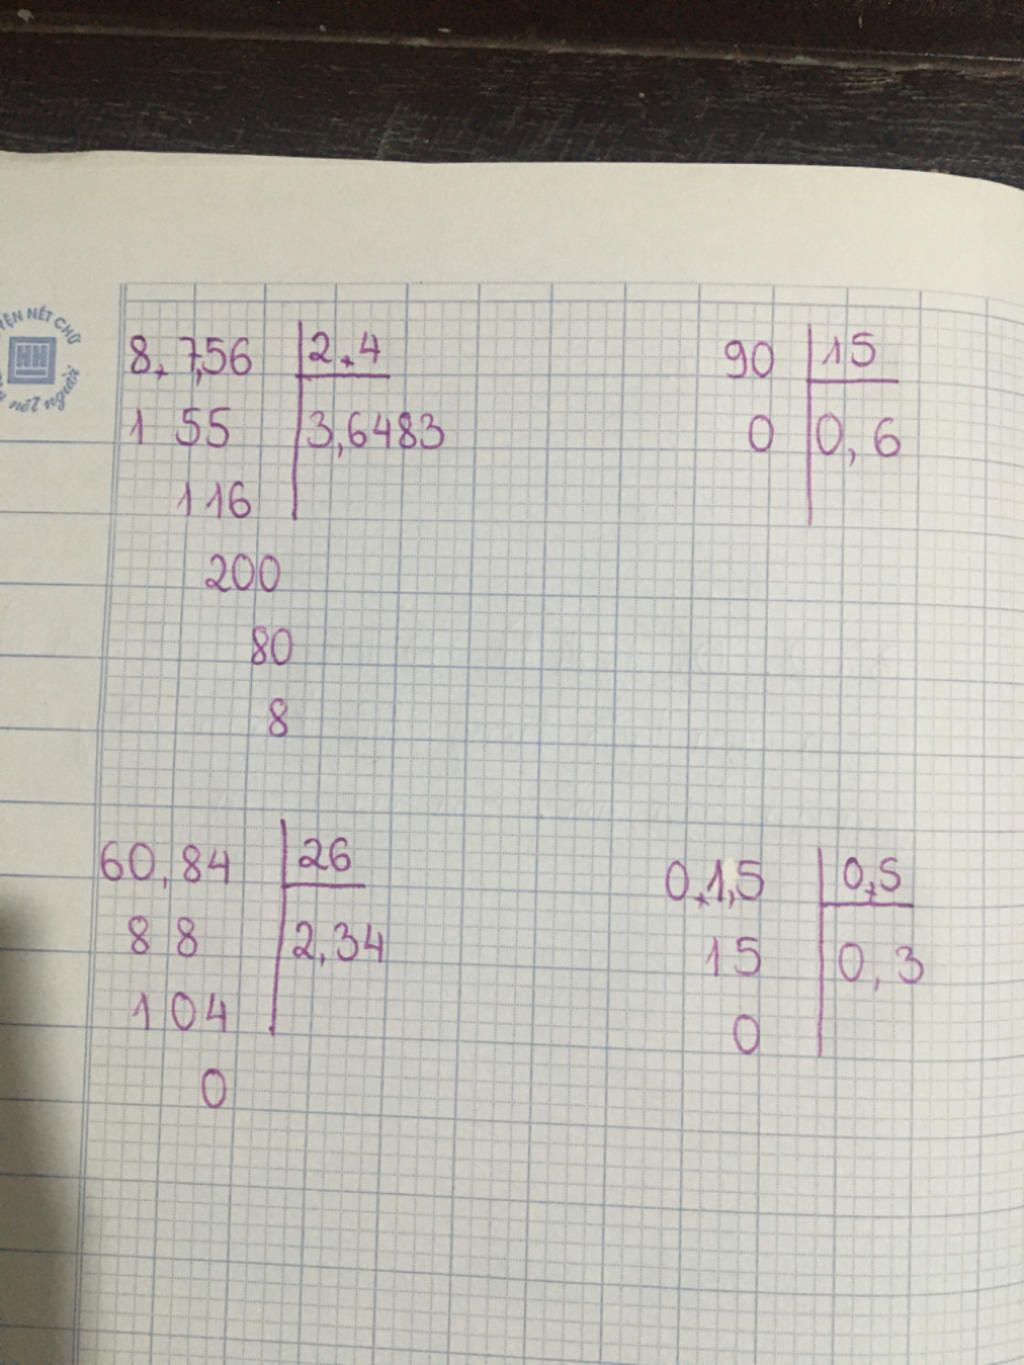 8,7,56 2,4
1 55 3,6483
116
200
80
8
90 15
0 0,6
60,84 26
88 2,34
104
0
0,1,5 0,5
15 0,3
0
NẾT CHỮ
HH
nết người